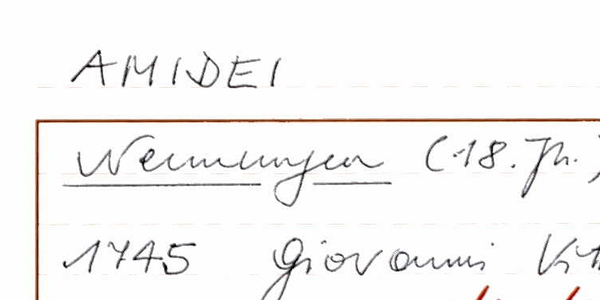 AMIDEI
Nennungen (18. Jh.)
1745 Giovanni